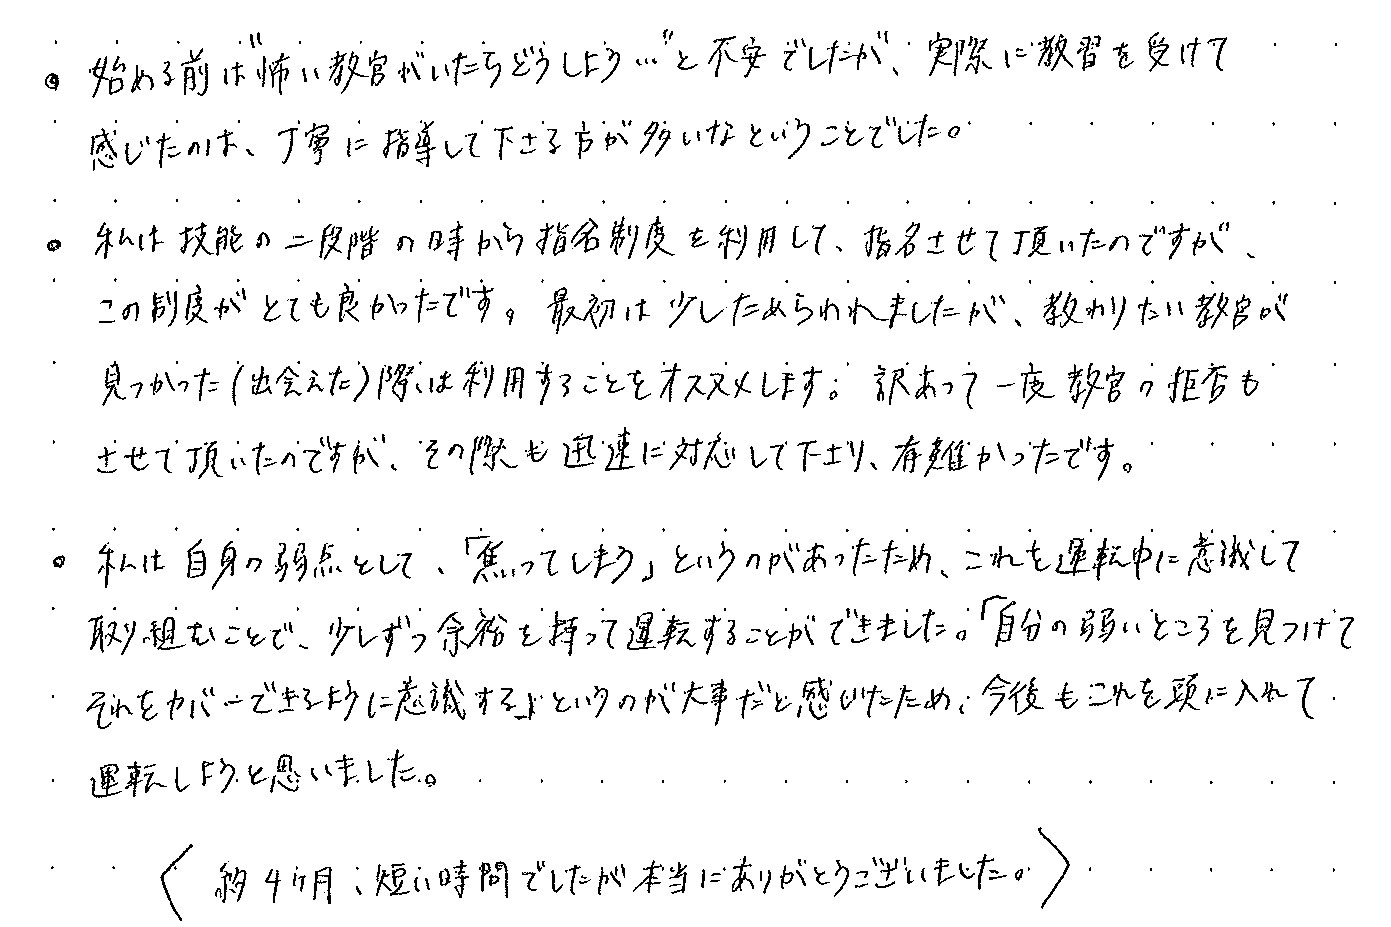 • 始める前は"怖い教官がいたらどうしよう…"と不安でしたが、実際に教習を受けて
感じたのは、丁寧に指導して下さる方が多いなということでした。
• 私は技能の二段階の時から指名制度を利用して、指名させて頂いたのですが、
この制度がとても良かったです。最初は少しためらわれましたが、教わりたい教官が
見つかった(出会えた)際には利用することをオススメします。訳あって一度教官の拒否も
させて頂いたのですが、その際も迅速に対応して下さり、有難かったです。
• 私は自身の弱点として、「焦ってしまう」というのがあったため、これを運転中に意識して
取り組むことで、少しずつ余裕を持って運転することができました。「自分の弱いところを見つけて
それをカバーできるように意識する」というのが大事だと感じたため、今後もこれを頭に入れて
運転しようと思いました。
〈 約4ヶ月、短い時間でしたが本当にありがとうございました。 〉